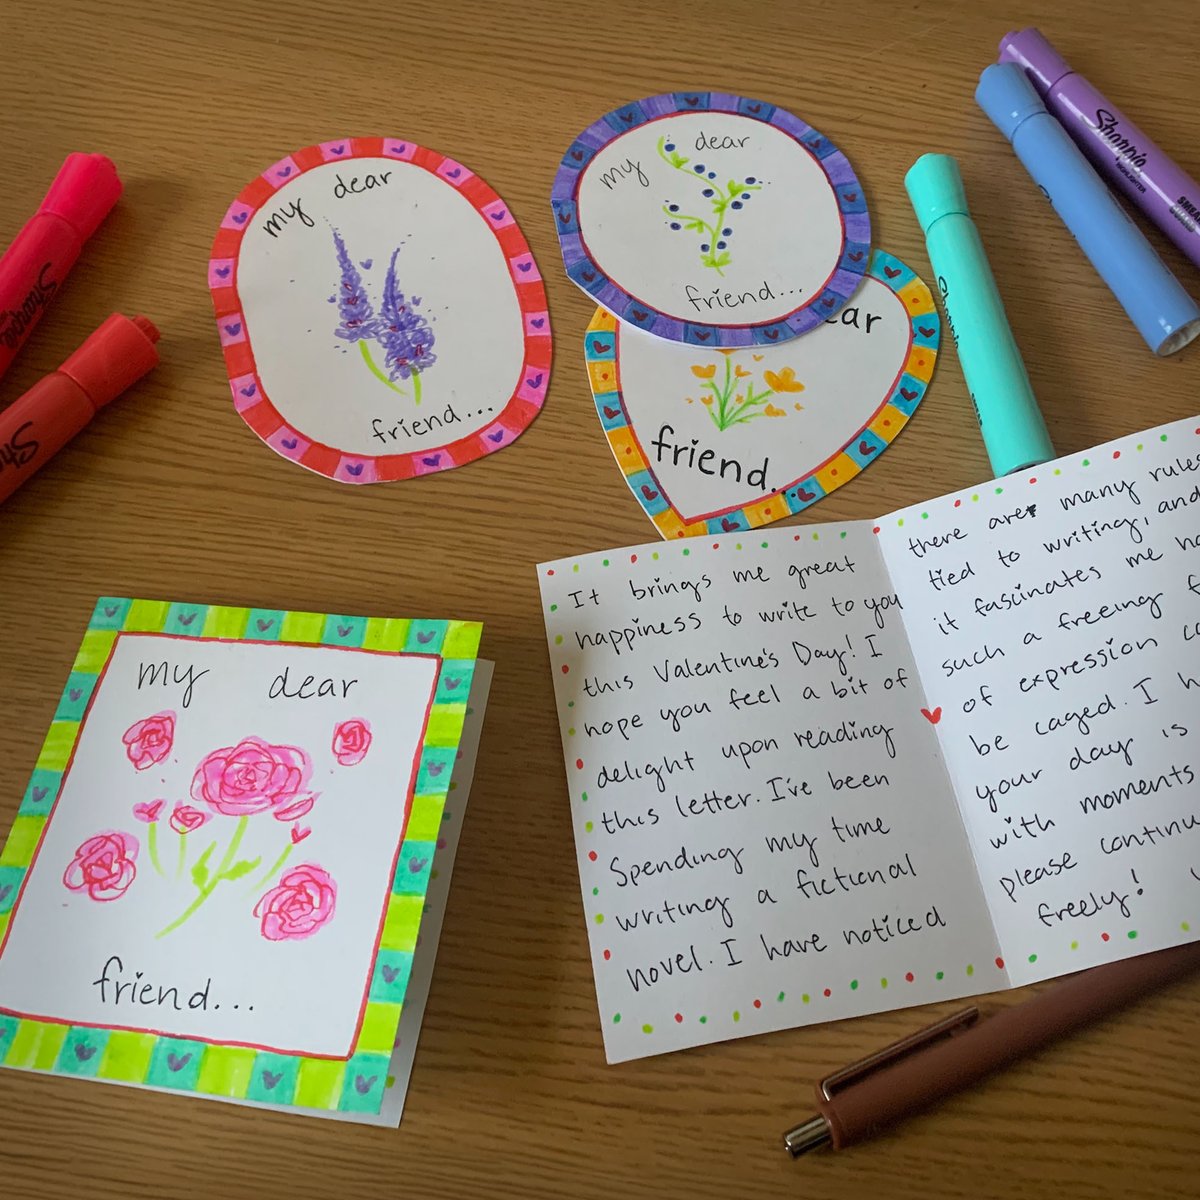 my dear
friend...
my dear
friend...
ear
friend...
my dear
friend...
It brings me great
happiness to write to you
this Valentine's Day! I
hope you feel a bit of
delight upon reading
this letter. I've been
Spending my time
writing a fictional
novel. I have noticed
there are many rules
tied to writing, and
it fasiinates me ho
such a freeing f
of expression c
be caged. I h
your day is
with moments
please continu
freely!
Sharpie
Sharpie
Sharpie
HIGHLIGHTER
Sharpie